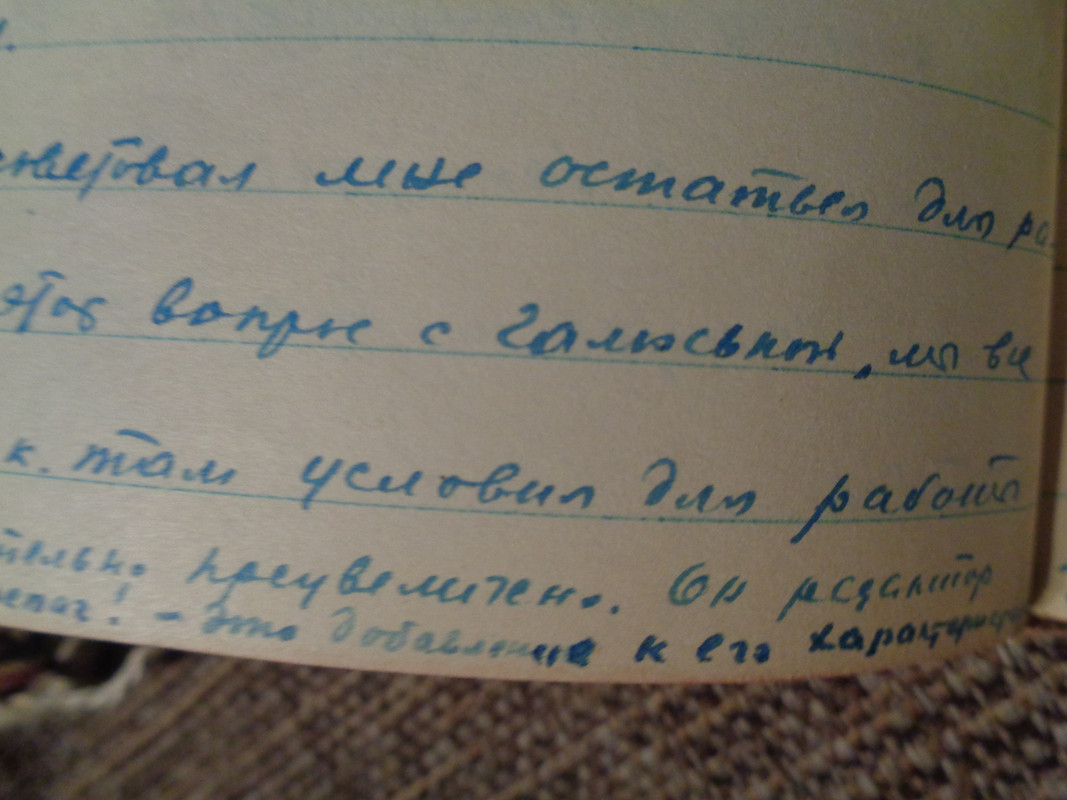 советовал мне остаться для ра
этот вопрос с мы все
к. там условия для работы
тельно преувеличено. Он редактор
! - Это добавление к его характерист